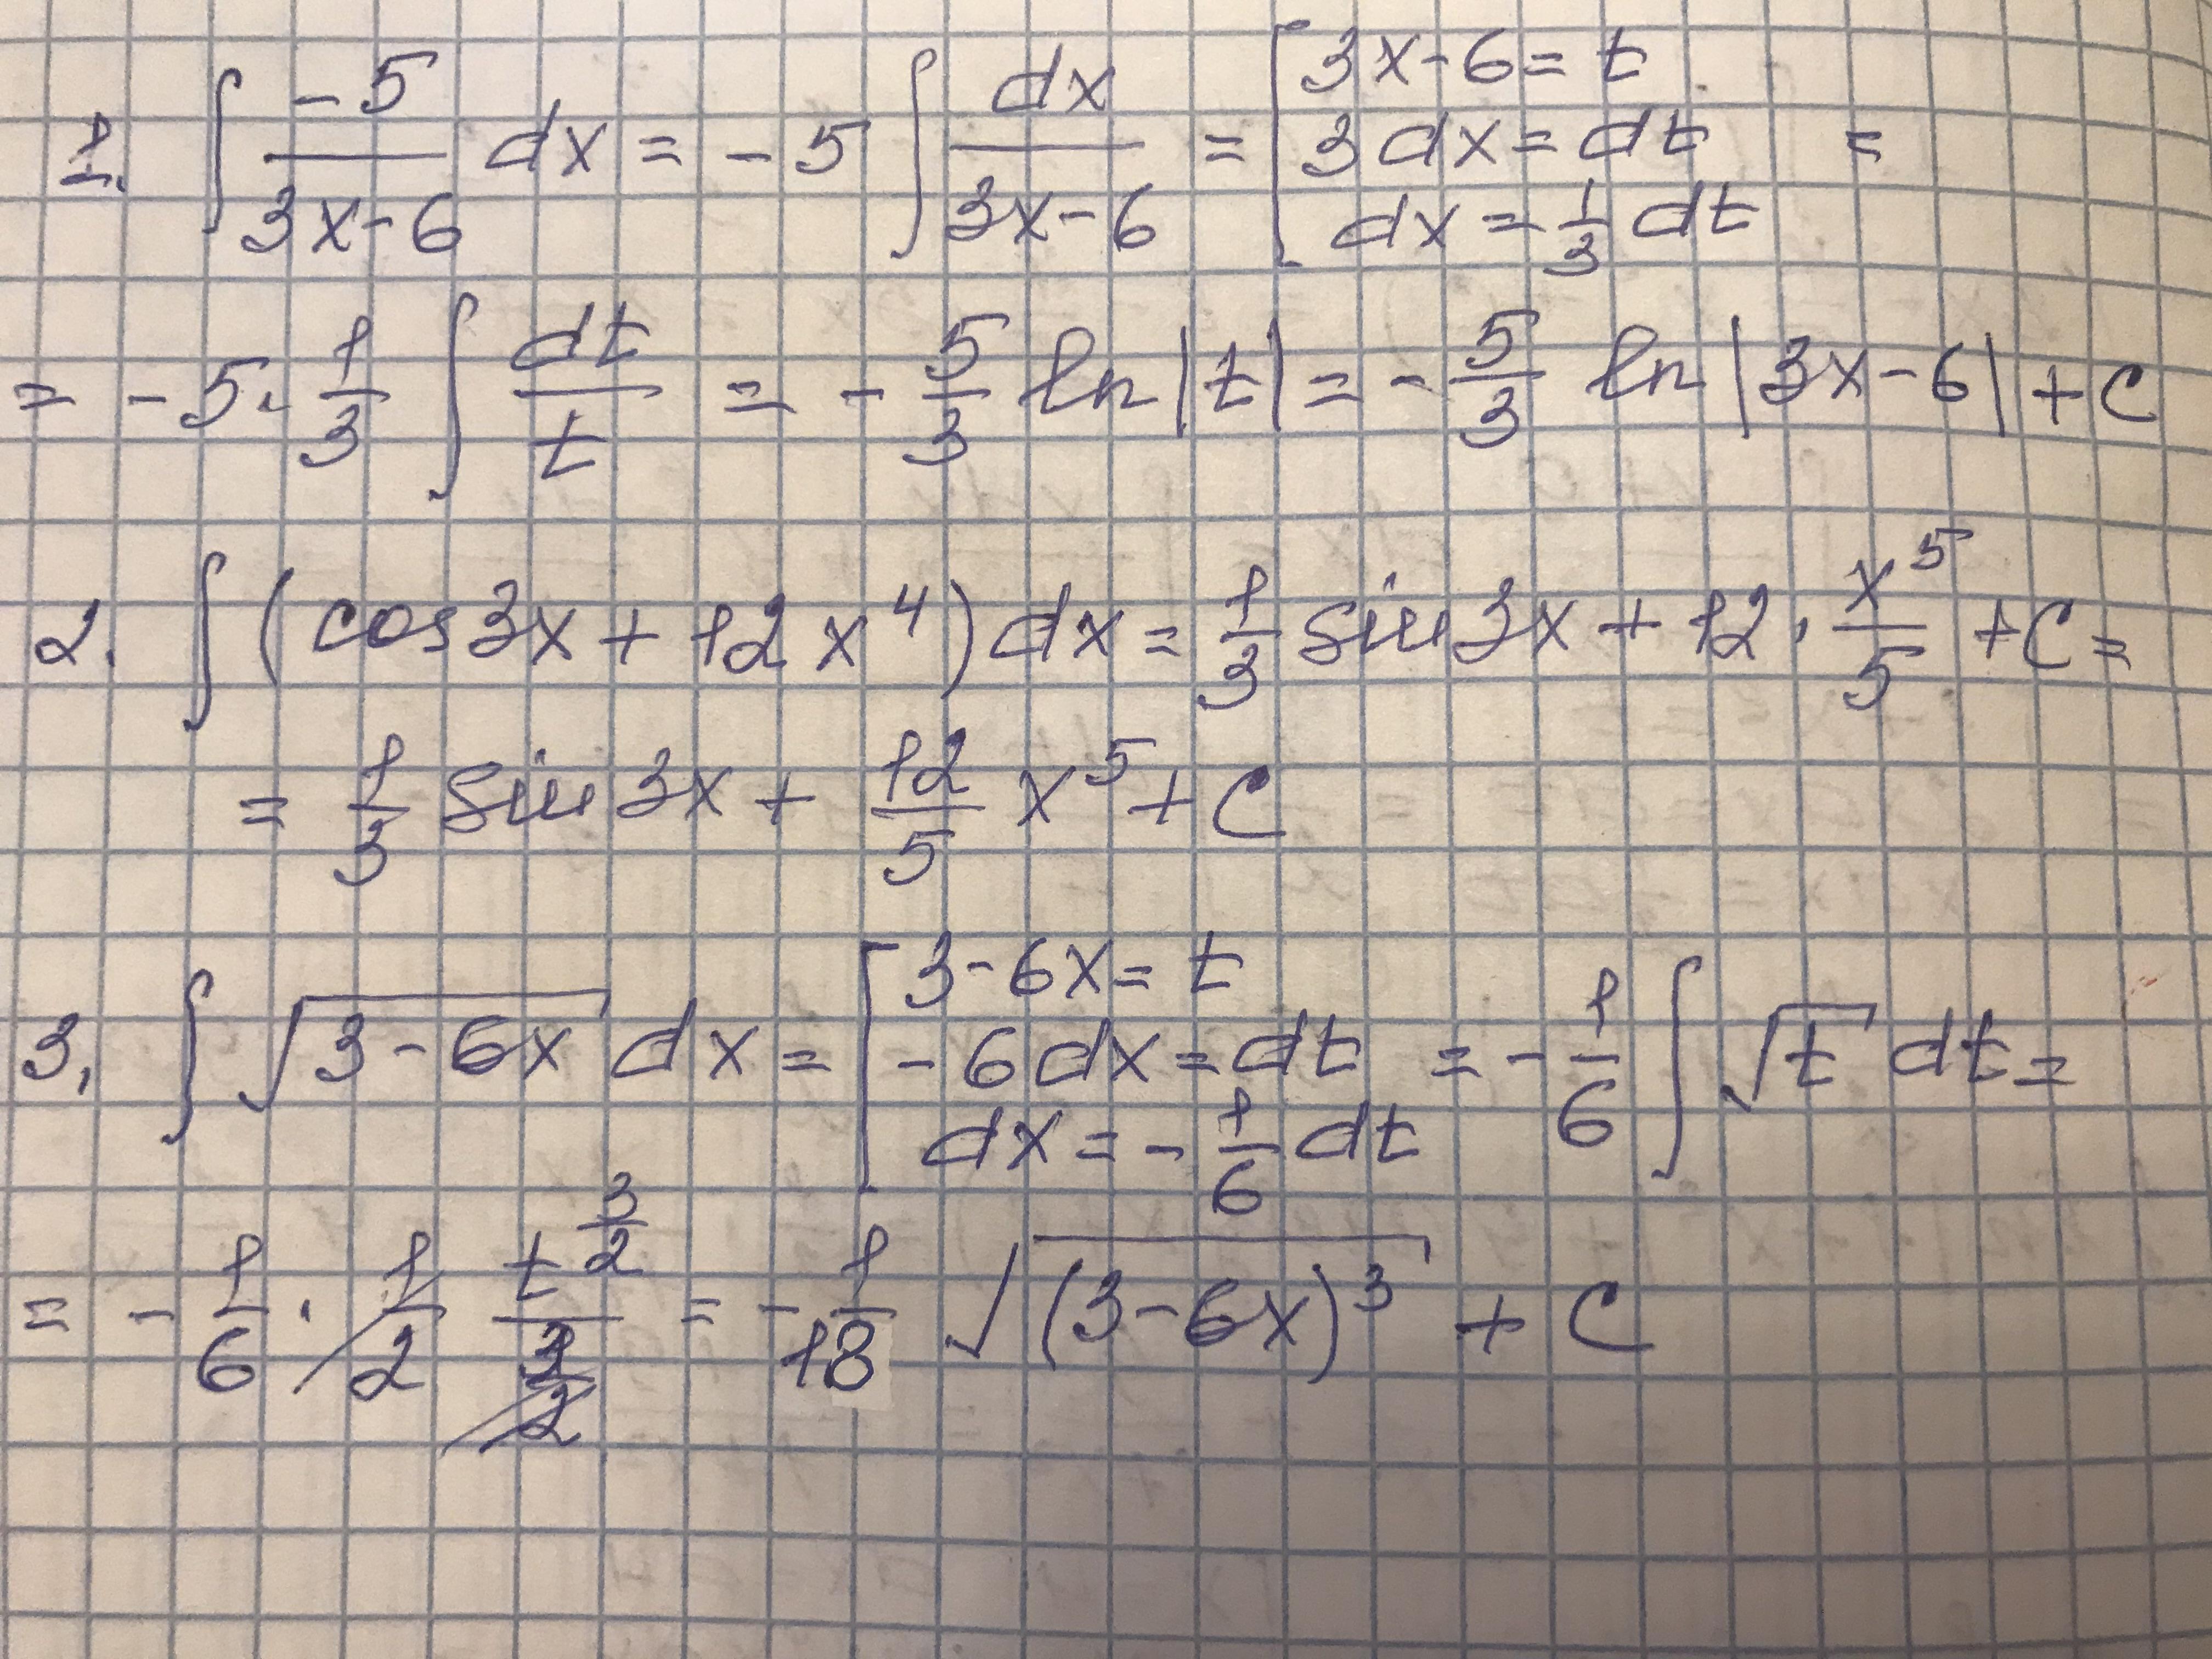 1. ∫ -5/(3x-6) dx = -5 ∫ dx/(3x-6) = [3x-6=t
3dx=dt =
dx=1/3 dt
= -5·1/3 ∫ dt/t = -5/3 ln|t| = -5/3 ln|3x-6|+C
2. ∫ (cos3x+12x^4)dx = 1/3 sin3x+12·x^5/5+C=
= 1/3 sin3x+12/5 x^5+C
3. ∫ √(3-6x) dx = [3-6x=t
-6dx=dt = -1/6 ∫ √t dt=
dx=-1/6 dt
= -1/6 · 1/2 t^(3/2)/(3/2) = -1/18 √((3-6x)^3) + C